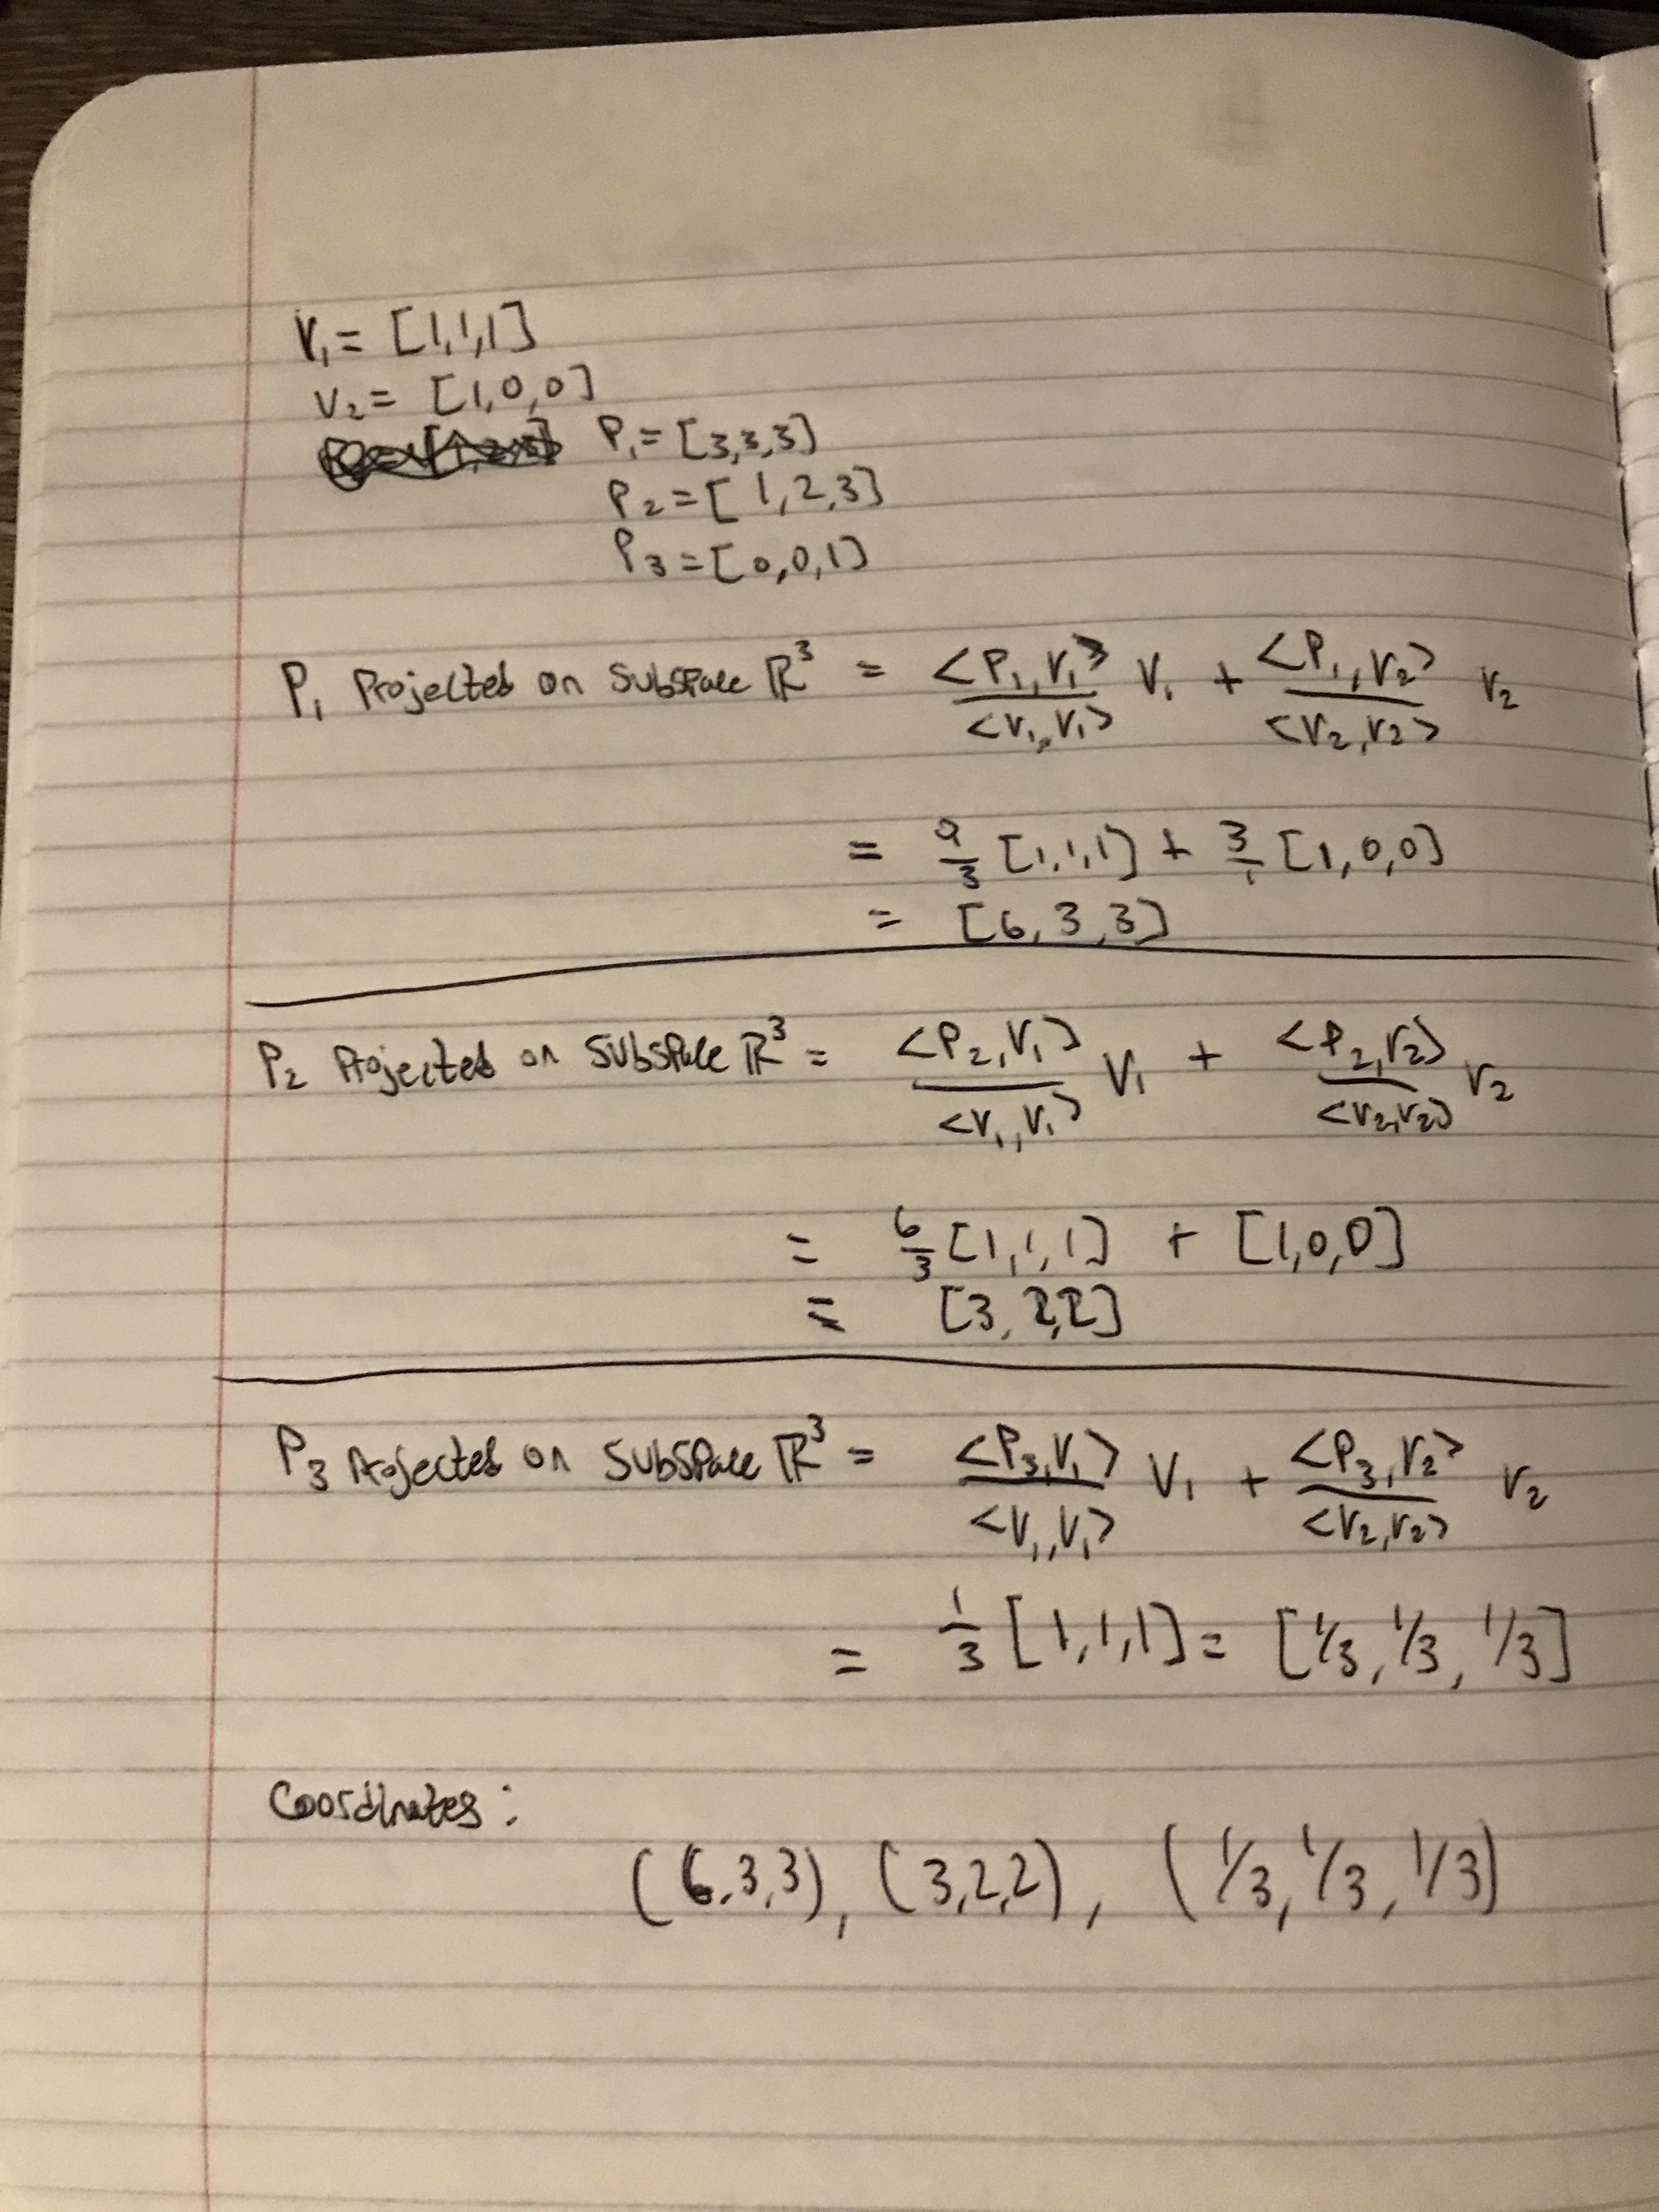 V₁ = [1,1,1]
V₂ = [1,0,0]
P₁ = [3,3,3]
P₂ = [1,2,3]
P₃ = [0,0,1]
P₁ Projected on Subspace ℝ³ = <P₁,V₁>/<V₁,V₁> V₁ + <P₁,V₂>/<V₂,V₂> V₂
= 9/3 [1,1,1] + 3/1 [1,0,0]
= [6,3,3]
P₂ Projected on Subspace ℝ³ = <P₂,V₁>/<V₁,V₁> V₁ + <P₂,V₂>/<V₂,V₂> V₂
= 6/3 [1,1,1] + [1,0,0]
= [3,2,2]
P₃ Projected on Subspace ℝ³ = <P₃,V₁>/<V₁,V₁> V₁ + <P₃,V₂>/<V₂,V₂> V₂
= 1/3 [1,1,1] = [1/3,1/3,1/3]
Coordinates:
(6,3,3), (3,2,2), (1/3,1/3,1/3)